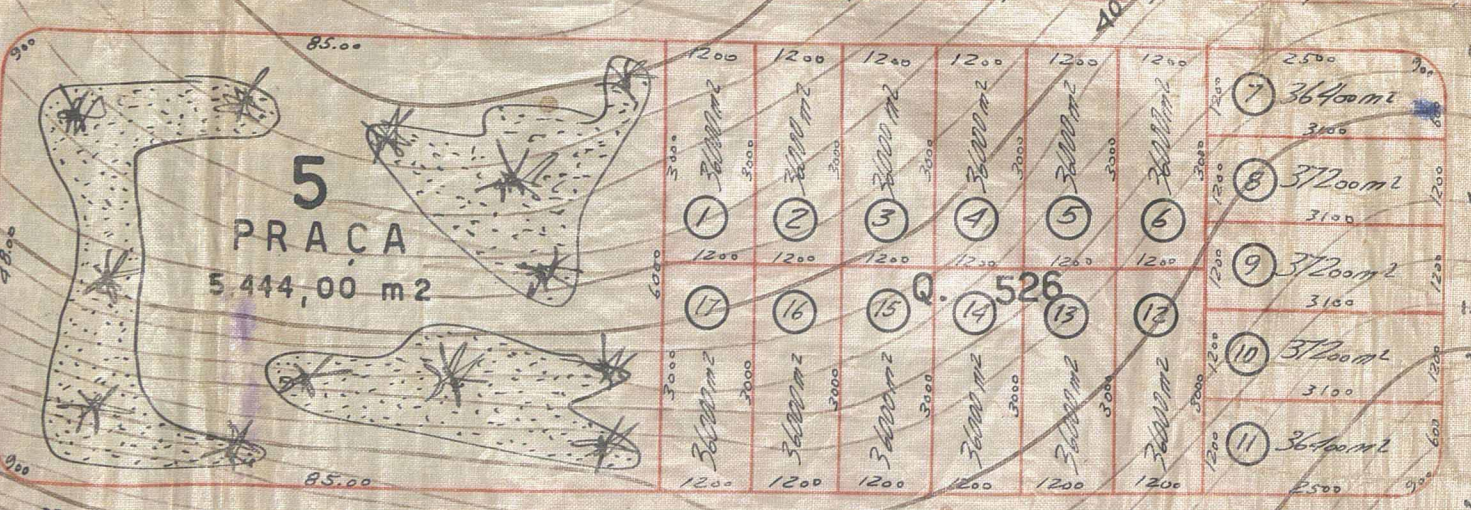 900
85.00
5
PRAÇA
5.444,00 m2
48.00
900
85.00
40
1200 1200 1200 1200 1200 1200
3000 36000m2 3000 36000m2 3000 36000m2 3000 36000m2 3000 36000m2 3000 36000m2 3000
1 2 3 4 5 6
1200 1200 1200 1200 1200 1200
6000
Q. 526
17 16 15 14 13 12
3000 36000m2 3000 36000m2 3000 36000m2 3000 36000m2 3000 36000m2 3000 36000m2 3000
1200 1200 1200 1200 1200 1200
2500 900
1200 7 36400m2 600
3100
1200 8 37200m2 1200
3100
1200 9 37200m2 1200
3100
1200 10 37200m2 1200
3100
1200 11 36400m2 600
2500 900